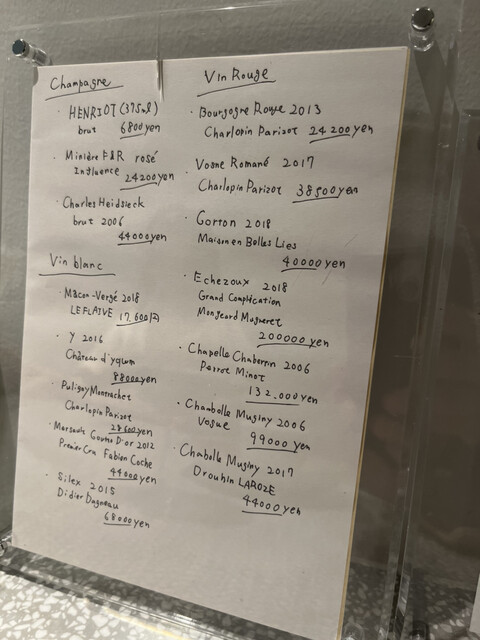 Champagne
· HENRIOT (375ml)
brut 6800yen
· Minière F&R rosé
Influence 24200yen
· Charles Heidsieck
brut 2006
44000yen
Vin blanc
· Mâcon-Vergé 2018
LEFLAIVE 17,600円
· Y 2016
Château d'yquem
88000yen
· Puligny Montrachet
Charlopin Parizot
28600yen
· Marsauls Goutte D'or 2012
Premier Cru Fabien Coche
44000yen
· Silex 2015
Didier Dagneau
68000yen
Vin Rouge
· Bourgogne Rouge 2013
Charlopin Parizot 24200yen
· Vosne Romané 2017
Charlopin Parizot 38500yen
· Corton 2018
Maison en Belles Lies
40000yen
· Echezoux 2018
Grand Complication
Mongeard Mugneret
200000yen
· Chapelle Chabertin 2006
Perrot Minot
132,000yen
· Chambolle Musginy 2006
Vogue 99000yen
· Chabolle Musginy 2017
Drouhin LAROZE
44000yen